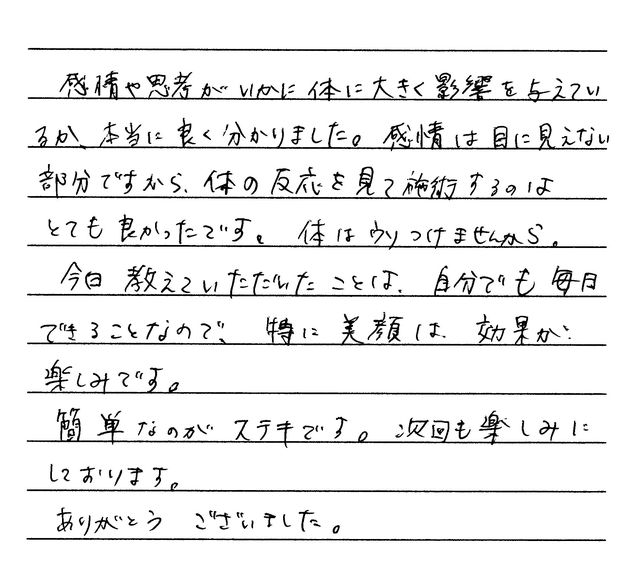 感情や思考がいかに体に大きく影響を与えてい
るか、本当に良く分かりました。感情は目に見えない
部分ですから、体の反応を見て施術するのは
とても良かったです。体はウソつけませんから。
今日教えていただいたことは、自分でも毎日
できることなので、特に美顔は、効果が
楽しみです。
簡単なのがステキです。次回も楽しみに
しております。
ありがとうございました。